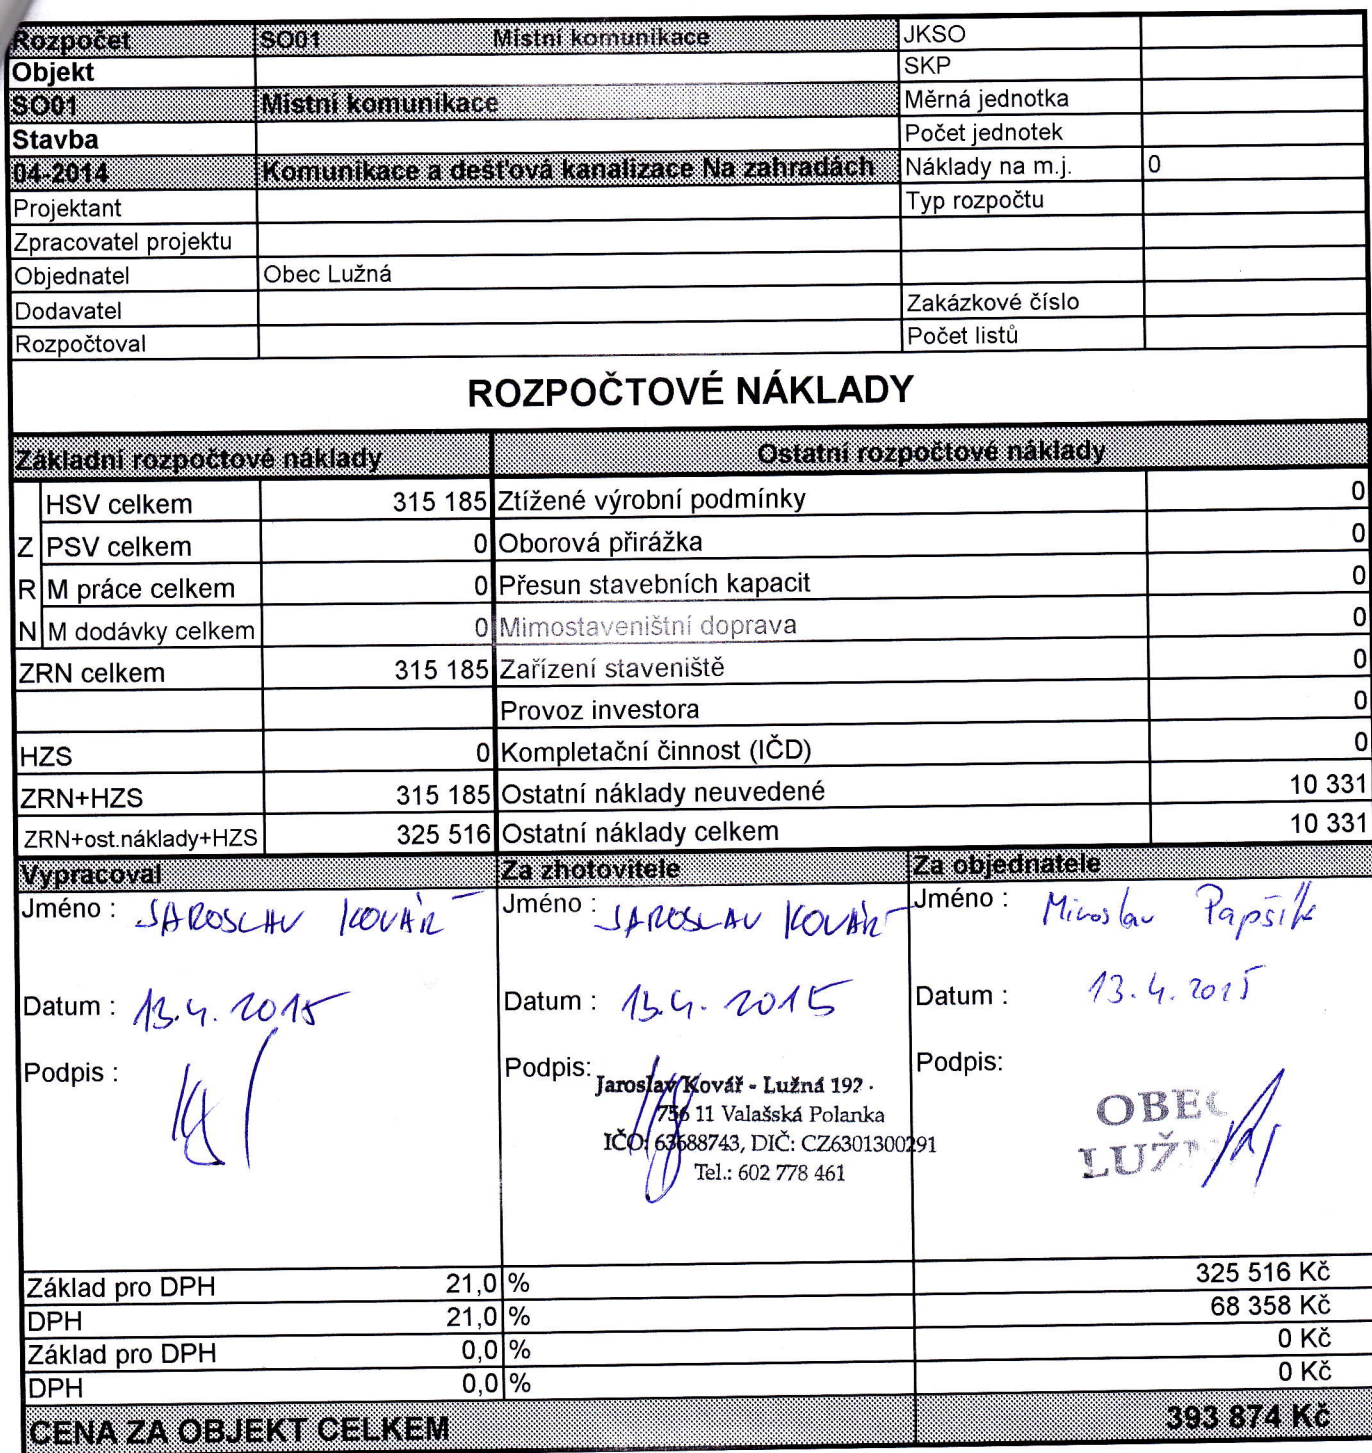 Rozpočet SO01 Místní komunikace JKSO
Objekt SKP
SO01 Místní komunikace Měrná jednotka
Stavba Počet jednotek
04-2014 Komunikace a dešťová kanalizace Na zahradách Náklady na m.j. 0
Projektant Typ rozpočtu
Zpracovatel projektu
Objednatel Obec Lužná
Dodavatel Zakázkové číslo
Rozpočtoval Počet listů
ROZPOČTOVÉ NÁKLADY
Základní rozpočtové náklady Ostatní rozpočtové náklady
HSV celkem 315 185 Ztížené výrobní podmínky 0
Z PSV celkem 0 Oborová přirážka 0
R M práce celkem 0 Přesun stavebních kapacit 0
N M dodávky celkem 0 Mimostaveništní doprava 0
ZRN celkem 315 185 Zařízení staveniště 0
Provoz investora 0
HZS 0 Kompletační činnost (IČD) 0
ZRN+HZS 315 185 Ostatní náklady neuvedené 10 331
ZRN+ost.náklady+HZS 325 516 Ostatní náklady celkem 10 331
Vypracoval Za zhotovitele Za objednatele
Jméno : JAROSLAV KOVÁŘ Jméno : JAROSLAV KOVÁŘ Jméno : Miroslav Papšík
Datum : 13.4.2015 Datum : 13.4.2015 Datum : 13.4.2015
Podpis : Podpis: Podpis:
Jaroslav Kovář - Lužná 192
756 11 Valašská Polanka
IČO: 63688743, DIČ: CZ6301300291
Tel.: 602 778 461
OBEC
LUŽN
Základ pro DPH 21,0 % 325 516 Kč
DPH 21,0 % 68 358 Kč
Základ pro DPH 0,0 % 0 Kč
DPH 0,0 % 0 Kč
CENA ZA OBJEKT CELKEM 393 874 Kč